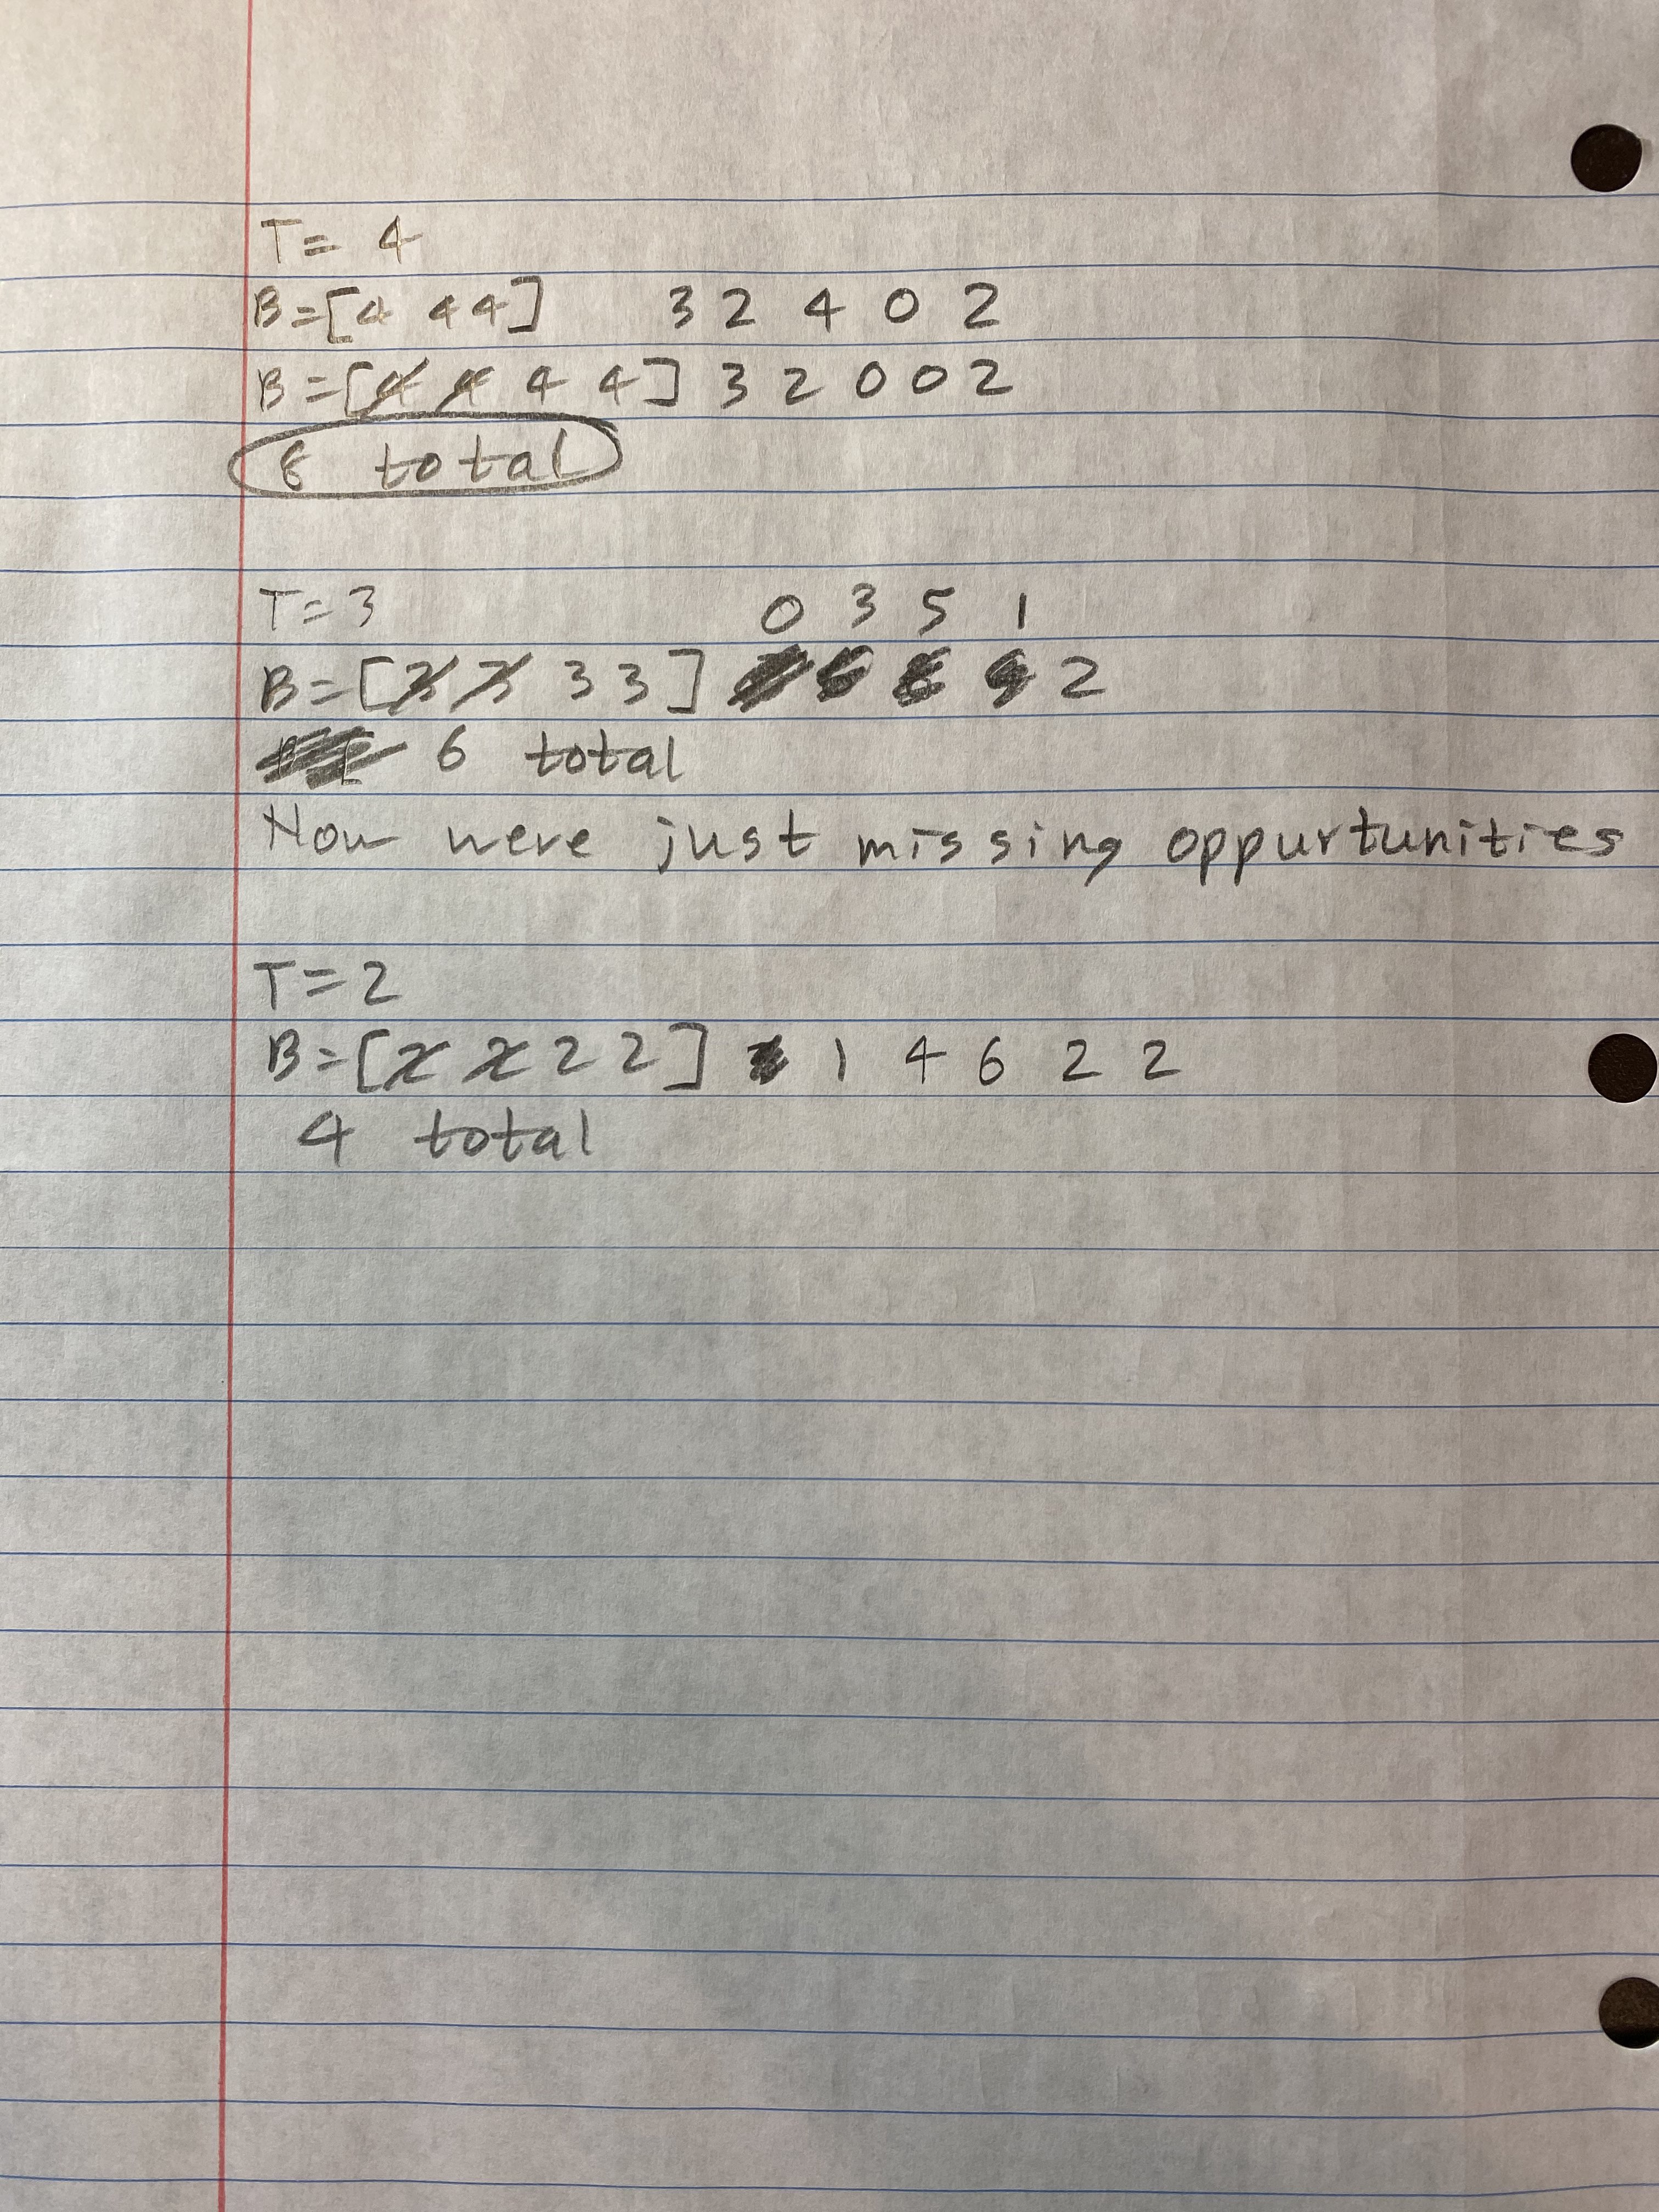 T= 4
B=[4 4 4] 3 2 4 0 2
B=[4 4 4 4] 3 2 0 0 2
8 total
T=3 0 3 5 1
B=[3 3 3 3] 2
6 total
Now were just missing oppurtunities
T=2
B=[2 2 2 2] 1 4 6 2 2
4 total